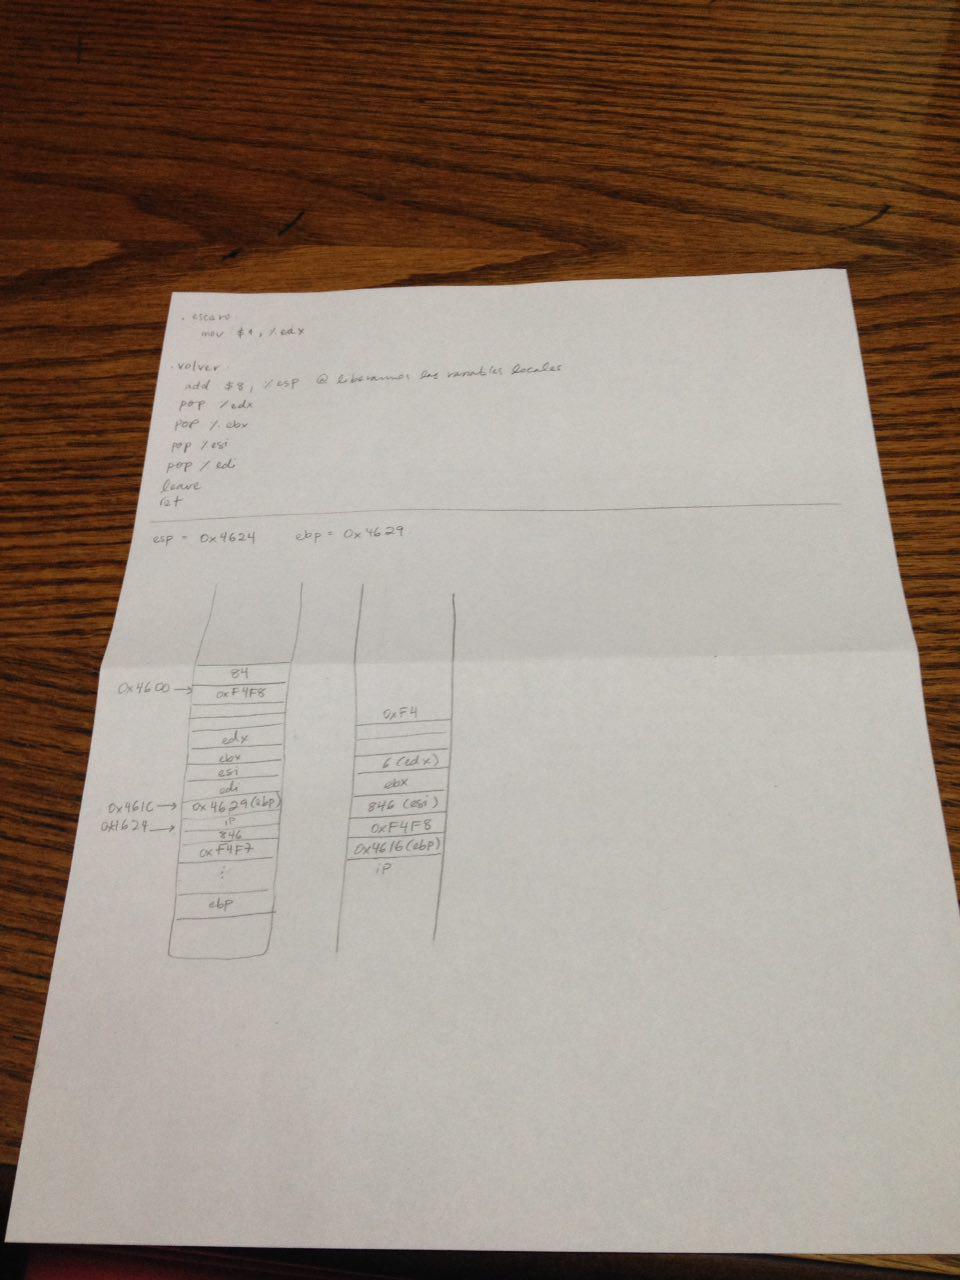 . escero:
mov $1, %edx
.volver:
add $8, %esp @ liberamos las variables locales
pop %edx
pop %ebx
pop %esi
pop %edi
leave
ret
esp = 0x4624 ebp = 0x4629
84
0x4600 → 0xF4F8
edx
ebx
esi
edi
0x4616 → 0x4629(ebp)
0x4624 → iP
846
0xF4F7
⋮
ebp
0xF4
6 (edx)
ebx
846 (esi)
0xF4F8
0x4616(ebp)
iP